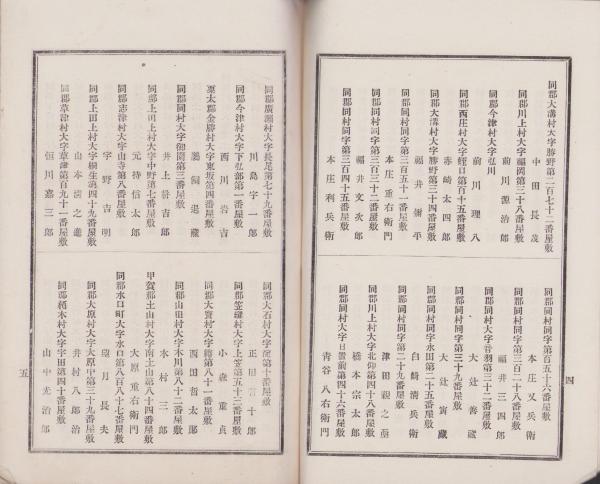 同郡大溝村大字勝野第二百七十二番屋敷
中田長茂
同郡川上村大字福岡第三百八十番屋敷
前川源治郎
同郡今津村大字弘川
前川理八
同郡西庄村大字蛭口第百十五番屋敷
赤崎太四郎
同郡大溝村大字勝野第三十四番屋敷
福井彌平
同郡同村同字第三百五十一番屋敷
本庄重右衛門
同郡同村同字第三百三十二番屋敷
福井文次郎
同郡同村同字第三百四十五番屋敷
本庄利兵衛
同郡同村同字第百五十六番屋敷
本庄又兵衛
同郡同村同字第三百二十八番屋敷
福井三四郎
同郡同村大字音羽第三十二番屋敷
大辻善蔵
同郡同村同字第三十九番屋敷
大辻寅蔵
同郡同村大字永田第二十五番屋敷
白崎清兵衛
同郡同村同字第二十九番屋敷
津田親之亟
同郡川上村大字北仰第四十八番屋敷
橋本宗太郎
同郡同村大字日置前第四十六番屋敷
青谷八右衛門
四
同郡廣瀬村大字長尾第七十九番屋敷
川島宇一郎
同郡今津村大字下弘部第一番屋敷
西川岩吉
栗太郡金勝村大字東坂第四番屋敷
鵜飼退蔵
同郡同村大字御園第三番屋敷
井上耕吉郎
同郡上田上村大字中野第七番屋敷
元持信太郎
同郡志津村大字山寺第八番屋敷
宇野吉明
同郡上田上村大字桐生第四十九番屋敷
山本清之進
同郡草津村大字草津第百九十一番屋敷
恒川嘉三郎
同郡大石村大字淀第十番屋敷
正田言十郎
同郡笠縫村大字上笠第五十三番屋敷
小森重貞
同郡大寶村大字綣第八十一番屋敷
西田哲太郎
同郡山田村大字木川第八十二番屋敷
木村三郎
甲賀郡土山村大字南土山第八十四番屋敷
大原重右衛門
同郡水口町大字水口第八百八十七番屋敷
望月長夫
同郡大原村大字大原中第三十九番屋敷
井村八郎治
同郡栢木村大字宇田第四十番屋敷
山中光治郎
五